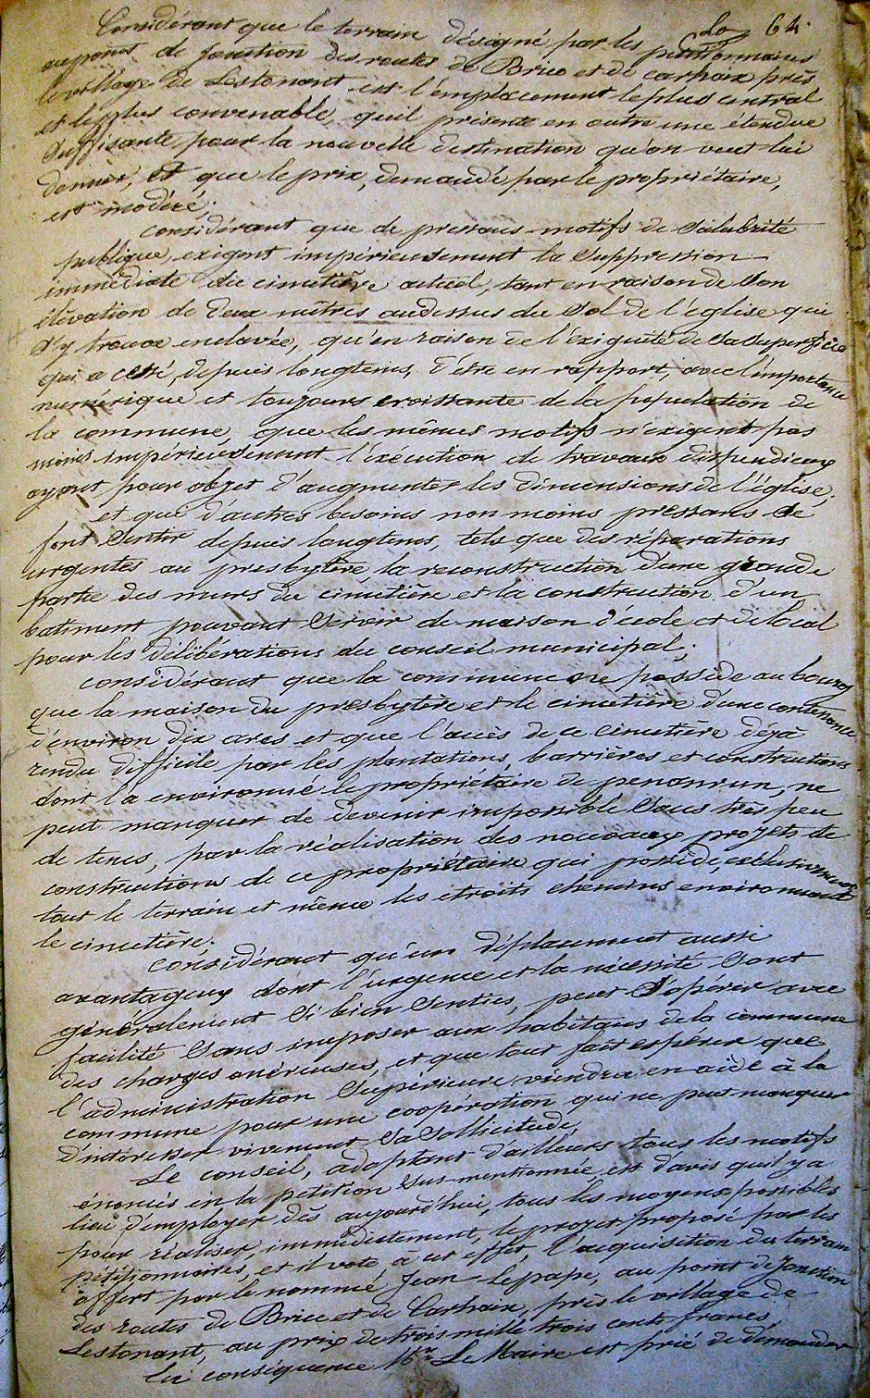 64.
Considérant que le terrain désigné par les pétitionnaires
au point de jonction des routes de Briec et de carhaix près
le village de Lestonant est l'emplacement le plus central
et le plus convenable, qu'il présente en outre une étendue
suffisante pour la nouvelle destination qu'on veut lui
donner, et que le prix, demandé par le propriétaire,
est modéré;
considérant que de pressans motifs de Salubrité
publique exigent impérieusement la Suppression
immédiate du cimetière actuel, tant en raison de Son
élévation de deux mètres audessus du Sol de l'église qui
s'y trouve enclavée, qu'en raison de l'exiguité de Sa Superficie
qui a cessé, depuis longtems, d'être en rapport, avec l'importance
numérique et toujours croissante de la population de
la commune, que les mêmes motifs n'exigent pas
moins impérieusement l'exécution de travaux dispendieux
ayant pour objet d'augmenter les dimensions de l'église;
et que d'autres besoins non moins pressans Se
font Sentir depuis longtems, tels que des réparations
urgentes au presbytère, la reconstruction d'une grande
partie des murs du cimetière et la construction d'un
batiment pouvant Servir de maison d'école et de local
pour les délibérations du conseil municipal;
considérant que la commune ne possède au bourg
que la maison du presbytère et le cimetière d'une contenance
d'environ dix ares et que l'accès de ce cimetière déjà
rendu difficile par les plantations, barrières et constructions
dont l'a environné le propriétaire de penanrun, ne
peut manquer de devenir impossible Sous très peu
de tems, par la réalisation des nouveaux projets de
constructions de ce propriétaire qui possède exclusivement
tout le terrain et même les étroits chemins environnants
le cimetière;
considérant qu'un déplacement aussi
avantageux dont l'urgence et la nécessité Sont
généralement Si bien Senties, peut S'opérer avec
facilité Sans imposer aux habitans de la commune
des charges onéreuses, et que tout fait espérer que
l'administration Supérieure viendra en aide à la
commune pour une coopération qui ne peut manquer
d'intéresser vivement Sa Sollicitude,
Le conseil, adoptant d'ailleurs tous les motifs
énoncés en la pétition Sus-mentionnée est d'avis qu'il y a
lieu d'employer dès aujourd'hui, tous les moyens possibles
pour réaliser, immédiatement, le projet proposé par les
pétitionnaires, et il vote, à cet effet, l'acquisition du terrain
offert par le nommé Jean Lepape, au point de jonction
des routes de Briec et de Carhaix, près le village de
Lestonant, au prix de trois mille trois cents francs,
En conséquence Mr Le Maire est prié de demander